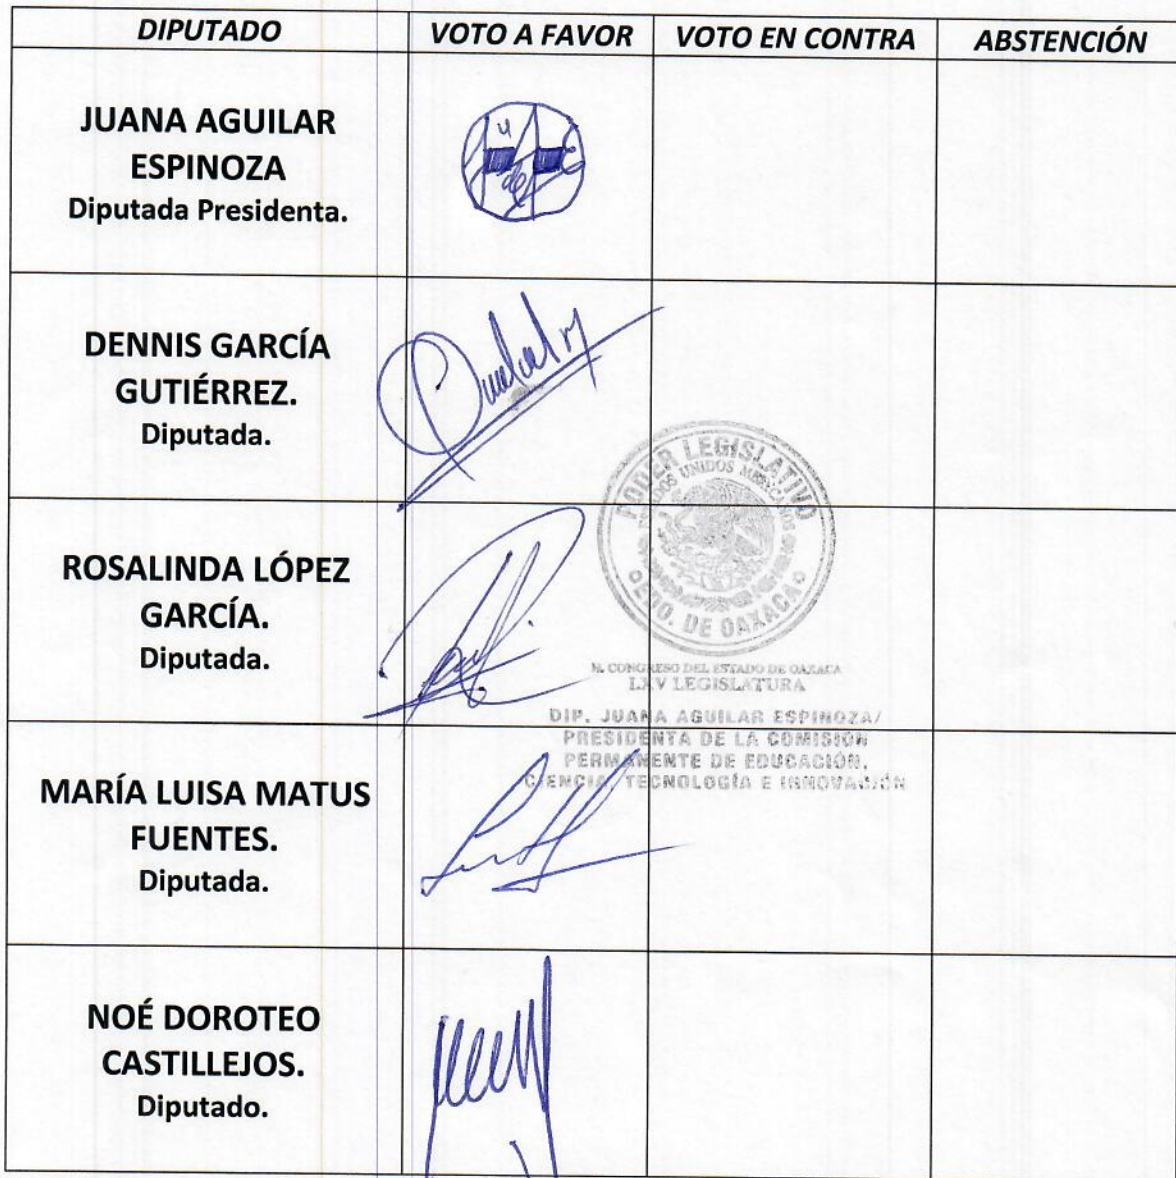 DIPUTADO VOTO A FAVOR VOTO EN CONTRA ABSTENCIÓN
JUANA AGUILAR
ESPINOZA
Diputada Presidenta.
DENNIS GARCÍA
GUTIÉRREZ.
Diputada.
ROSALINDA LÓPEZ
GARCÍA.
Diputada.
MARÍA LUISA MATUS
FUENTES.
Diputada.
NOÉ DOROTEO
CASTILLEJOS.
Diputado.
PODER LEGISLATIVO
ESTADOS UNIDOS MEXICANOS
EDO. DE OAXACA
H. CONGRESO DEL ESTADO DE OAXACA
LXV LEGISLATURA
DIP. JUANA AGUILAR ESPINOZA/
PRESIDENTA DE LA COMISIÓN
PERMANENTE DE EDUCACIÓN,
CIENCIA, TECNOLOGÍA E INNOVACIÓN